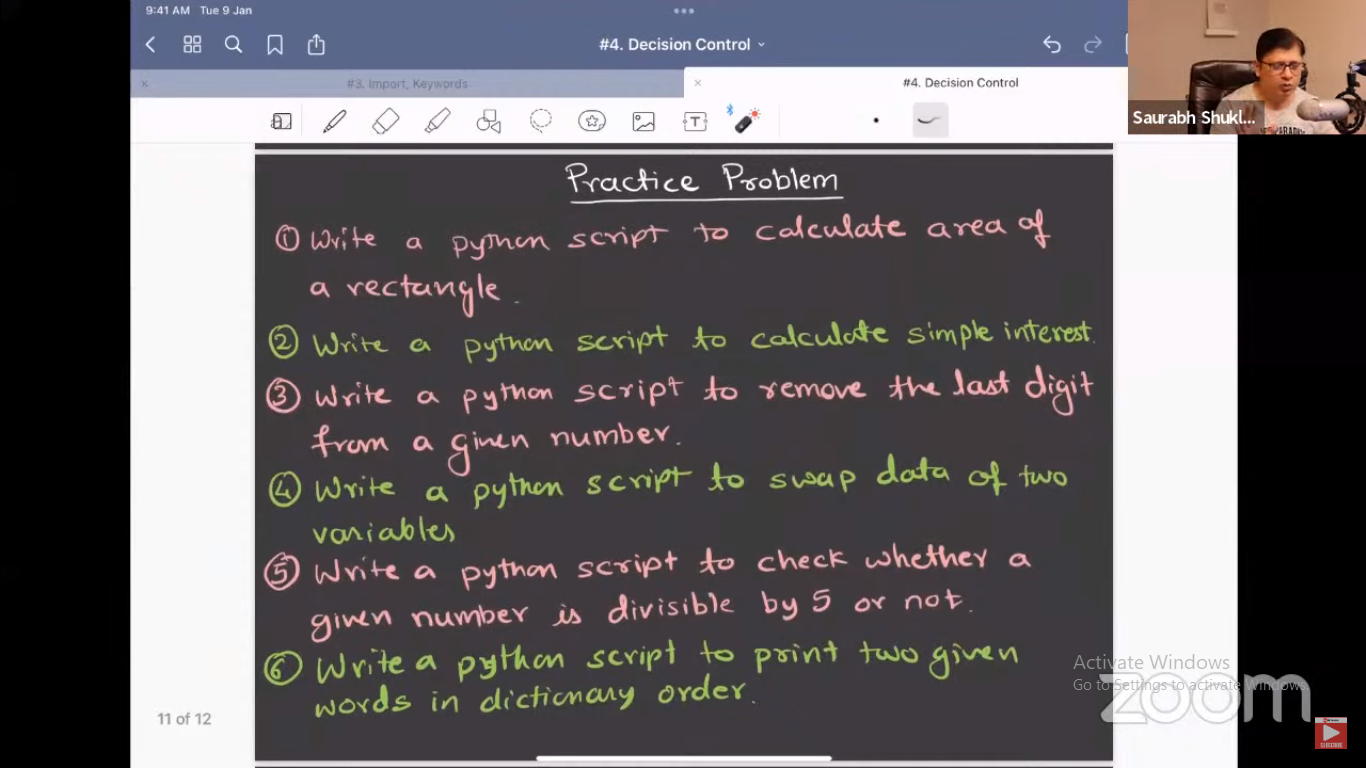 9:41 AM Tue 9 Jan
#4. Decision Control
#3. Import, Keywords
#4. Decision Control
T
Saurabh Shukl...
Practice Problem
① Write a python script to calculate area of
a rectangle.
② Write a python script to calculate simple interest.
③ Write a python script to remove the last digit
from a given number.
④ Write a python script to swap data of two
variables
⑤ Write a python script to check whether a
given number is divisible by 5 or not.
⑥ Write a python script to print two given
words in dictionary order.
11 of 12
Activate Windows
Go to Settings to activate Windows.
zoom
SUBSCRIBE